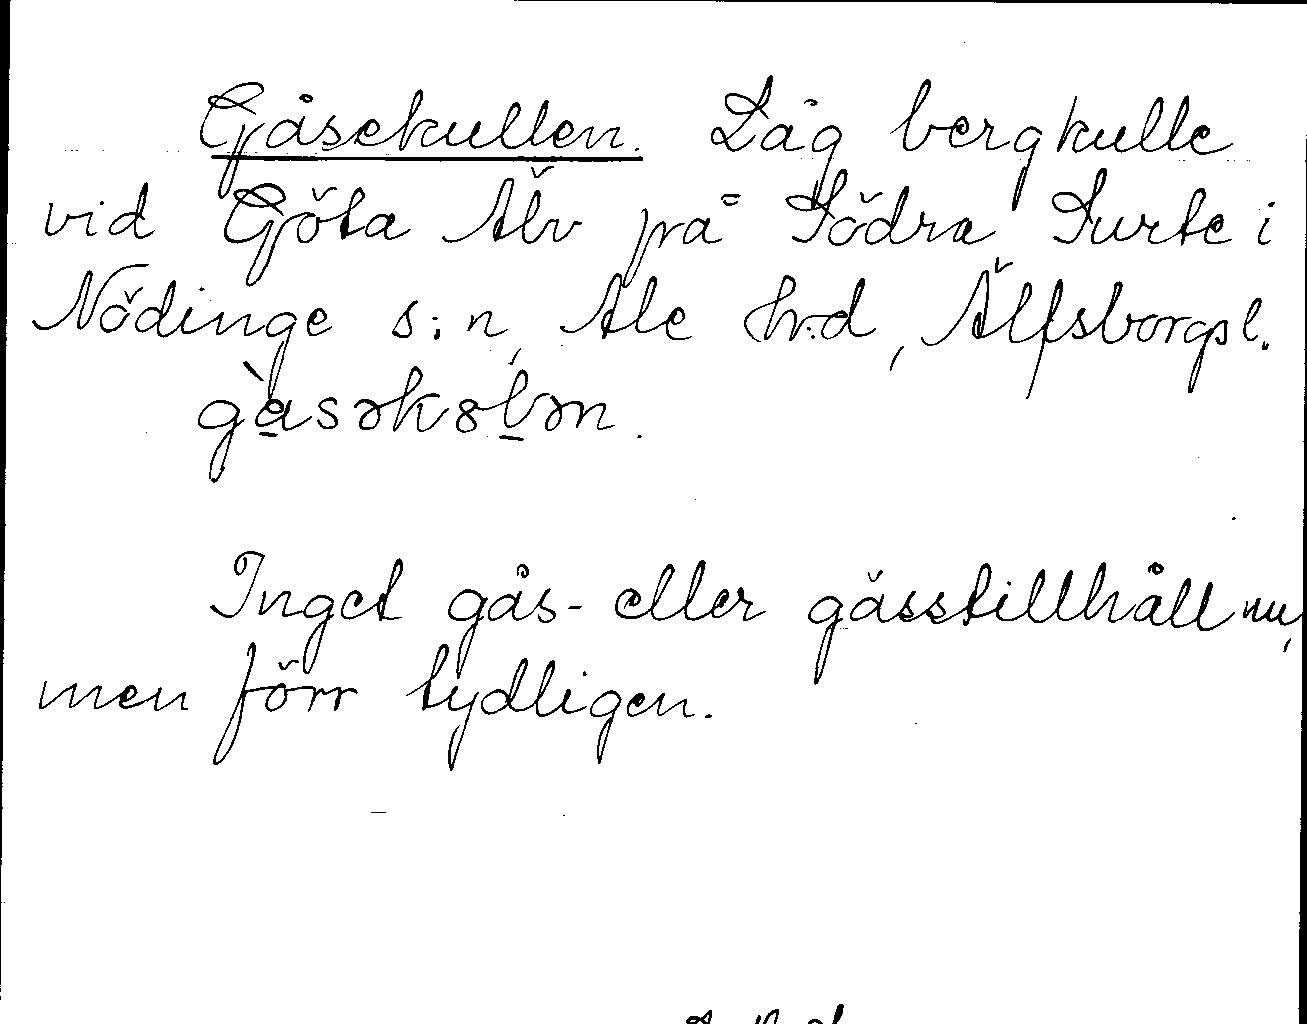 Gåsekullen. Låg bergkulle
vid Göta Älv på Södra Surte i
Nödinge s:n, Ale hr:d, Älfsborgs l.
gàsəkȣlən.
Inget gås- eller gässtillhåll nu,
men förr tydligen.